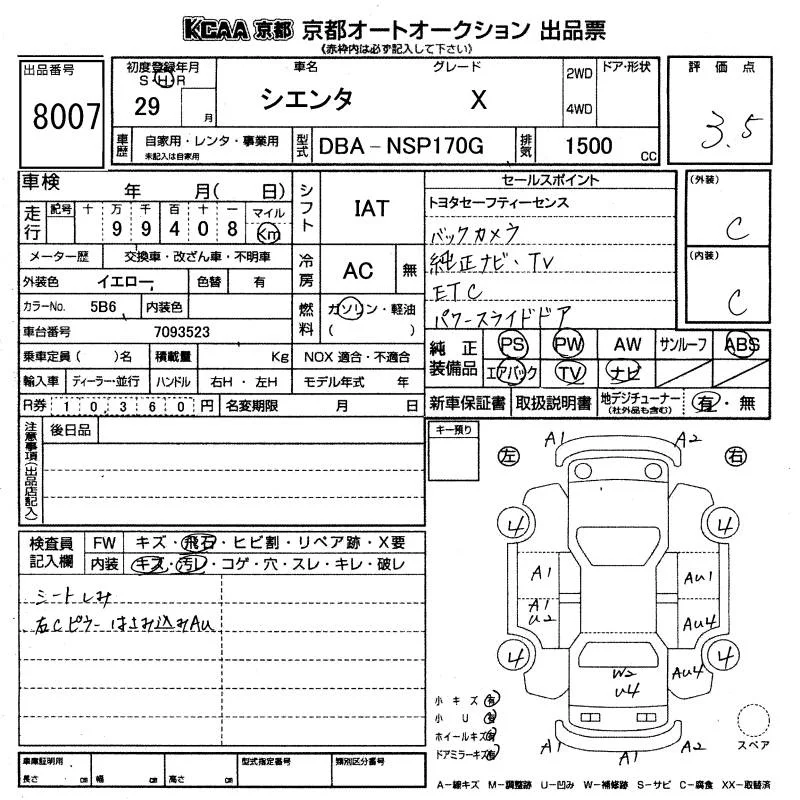 KCAA 京都 京都オートオークション 出品票
《赤枠内は必ず記入して下さい》
出品番号
8007
初度登録年月
S・H・R
29 月
車名 グレード
シエンタ X
2WD
4WD
ドア・形状
評価点
3.5
車歴
自家用・レンタ・事業用
未記入は自家用
型式 DBA-NSP170G
排気 1500 CC
車検 年 月( 日)
走行
記号 十 万 千 百 十 一
9 9 4 0 8
マイル
Km
メーター歴 交換車・改ざん車・不明車
外装色 イエロー 色替 有
カラーNo. 5B6 内装色
車台番号 7093523
乗車定員( )名 積載量 Kg
輸入車 ディーラー・並行 ハンドル 右H・左H
R券 10,360円 名変期限 月 日
シフト IAT
冷房 AC 無
燃料 ガソリン・軽油
( )
NOX 適合・不適合
モデル年式 年
セールスポイント
トヨタセーフティーセンス
バックカメラ
純正ナビ・TV
ETC
パワースライドドア
(外装)
C
(内装)
C
純正装備品
PS PW AW サンルーフ ABS
エアバック TV ナビ
新車保証書 取扱説明書 地デジチューナー
(社外品も含む)
有・無
注意事項(出品店記入)
後日品
キー預り
検査員記入欄
FW キズ・飛石・ヒビ割・リペア跡・X要
内装 キズ・汚レ・コゲ・穴・スレ・キレ・破レ
シートしみ
右Cピラーはさみ込みAU
左 右
A1 A2
4 4
A1 AU1
A1
U2 AU4
4 4
W2
U4
AU4
A1 A1 A2
小キズ 有
小U 有
ホイールキズ 有
ドアミラーキズ 有
スペア
車庫証明用
長さ cm 幅 cm 高さ cm
型式指定番号 類別区分番号
A-線キズ M-調整跡 U-凹み W-補修跡 S-サビ C-腐食 XX-取替済